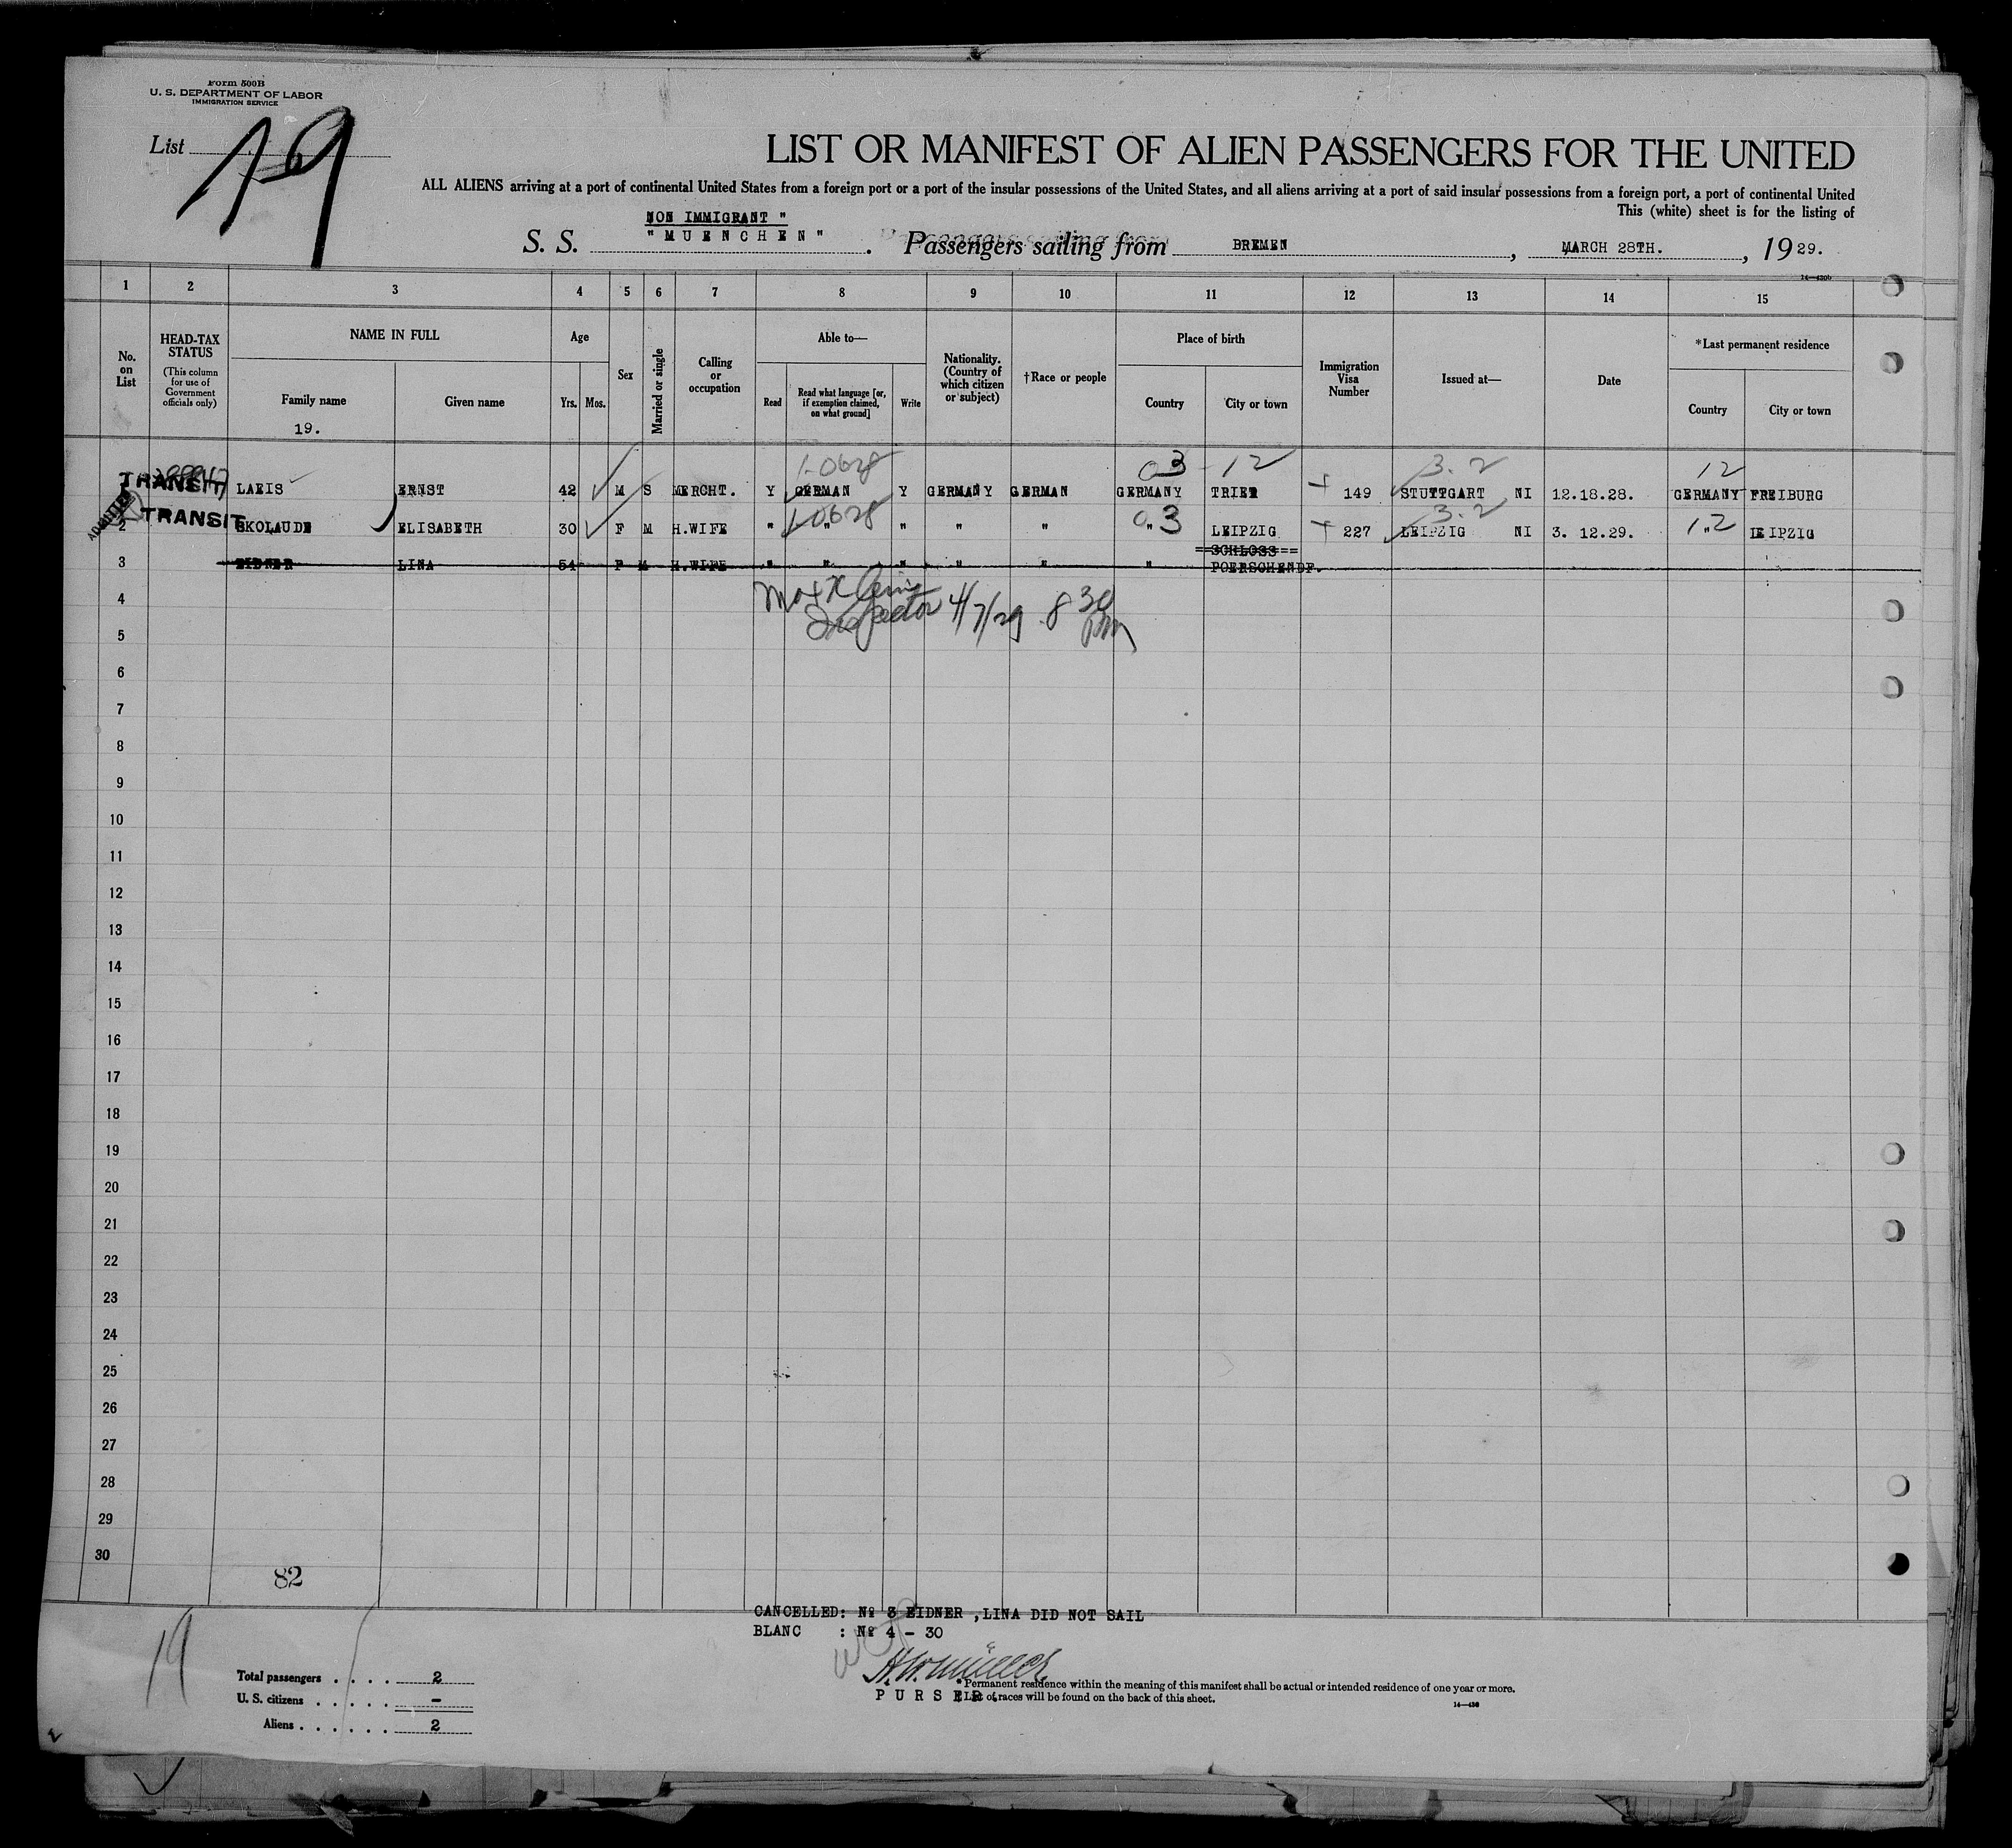 Form 500B
U. S. DEPARTMENT OF LABOR
IMMIGRATION SERVICE
List 19
LIST OR MANIFEST OF ALIEN PASSENGERS FOR THE UNITED
ALL ALIENS arriving at a port of continental United States from a foreign port or a port of the insular possessions of the United States, and all aliens arriving at a port of said insular possessions from a foreign port, a port of continental United
This (white) sheet is for the listing of
NON IMMIGRANT "
S. S. " MUENCHEN " . Passengers sailing from BREMEN , MARCH 28TH. , 19 29.
14—430b
1 2 3 4 5 6 7 8 9 10 11 12 13 14 15
No. on List
HEAD-TAX STATUS
(This column for use of Government officials only)
NAME IN FULL
Family name
Given name
19.
Age
Yrs. Mos.
Sex
Married or single
Calling or occupation
Able to—
Read
Read what language [or, if exemption claimed, on what ground]
Write
Nationality. (Country of which citizen or subject)
†Race or people
Place of birth
Country
City or town
Immigration Visa Number
Issued at—
Date
*Last permanent residence
Country
City or town
03 - 12 3.2 12
TRANSIT LAEIS ERNST 42 M S MERCHT. Y GERMAN Y GERMANY GERMAN GERMANY TRIER 149 STUTTGART NI 12.18.28. GERMANY FREIBURG
ADMITTED
1-0628 03 3.2
2 TRANSIT SKOLAUDE ELISABETH 30 F M H.WIFE " " " " " " LEIPZIG 227 LEIPZIG NI 3. 12.29. " LEIPZIG
12
3 EIDNER LINA 54 F M H.WIFE " " " " " " SCHLOSS
POERSCHENDF.
4
Inspector 4/7/29 8 30 pm
5
6
7
8
9
10
11
12
13
14
15
16
17
18
19
20
21
22
23
24
25
26
27
28
29
30
82
CANCELLED: № 3 EIDNER ,LINA DID NOT SAIL
BLANC : № 4 - 30
19
Total passengers . . . . 2
U. S. citizens . . . . . -
Aliens . . . . . . 2
*Permanent residence within the meaning of this manifest shall be actual or intended residence of one year or more.
PURSER.
† List of races will be found on the back of this sheet.
14—430